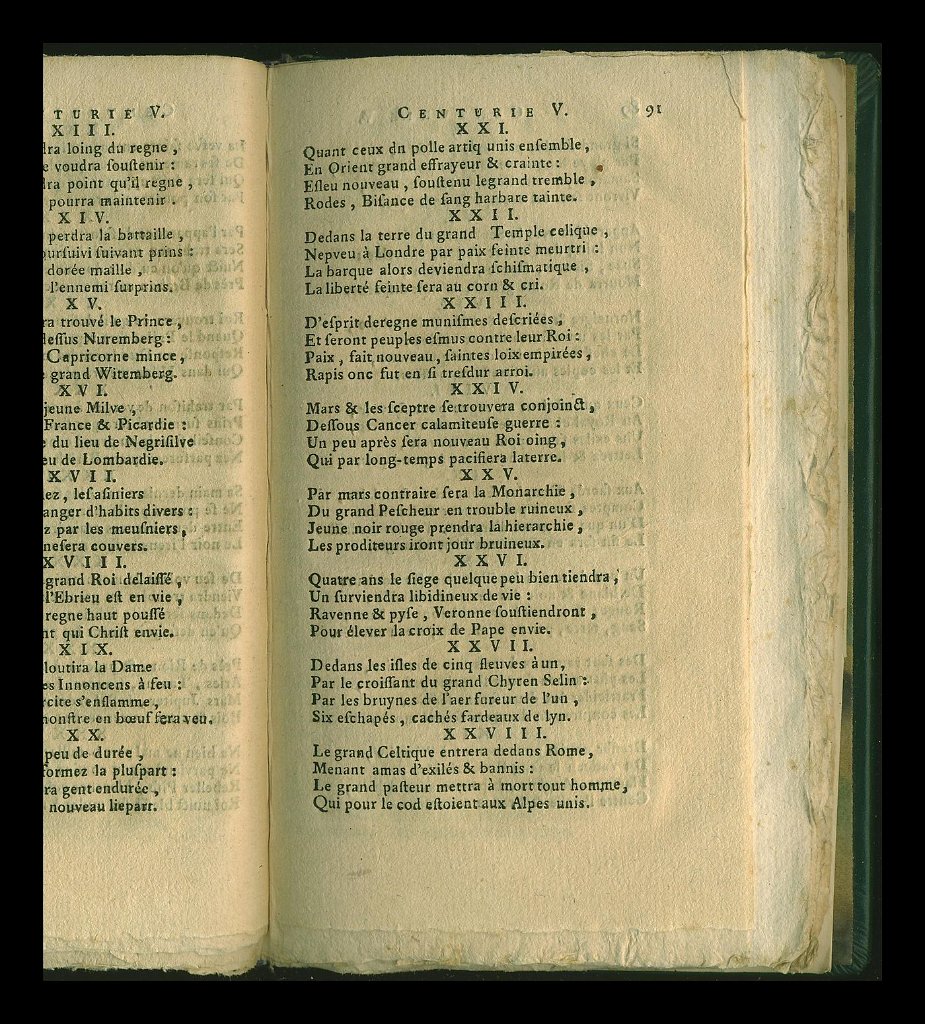 TURIE V.
XIII.
loing du regne,
voudra ſouſtenir :
point qu'il regne,
pourra maintenir.
XIV.
perdra la battaille,
ſuivant prins :
dorée maille,
l'ennemi ſurprins.
XV.
trouvé le Prince,
Nuremberg :
Capricorne mince,
grand Witemberg.
XVI.
jeune Milve,
France & Picardie :
du lieu de Negriſilve
de Lombardie.
XVII.
leſaſiniers
d'habits divers :
par les meuſniers,
neſera couvers.
XVIII.
grand Roi délaiſſé,
l'Ebrieu eſt en vie,
regne haut pouſſé
qui Chriſt envie.
XIX.
la Dame
Innoncens à feu :
s'enflamme,
en bœuf ſera veu.
XX.
peu de durée,
la pluſpart :
gent endurée,
nouveau liepart.
CENTURIE V. 91
XXI.
Quant ceux dn polle artiq unis enſemble,
En Orient grand effrayeur & crainte :
Eſleu nouveau, ſouſtenu legrand tremble,
Rodes, Biſance de ſang harbare tainte.
XXII.
Dedans la terre du grand Temple celique,
Nepveu à Londre par paix feinte meurtri :
La barque alors deviendra ſchiſmatique,
La liberté feinte ſera au corn & cri.
XXIII.
D'eſprit deregne muniſmes deſcriées,
Et ſeront peuples eſmus contre leur Roi :
Paix, fait nouveau, ſaintes loix empirées,
Rapis onc fut en ſi treſdur arroi.
XXIV.
Mars & les ſceptre ſe trouvera conjoinct,
Deſſous Cancer calamiteuſe guerre :
Un peu après ſera nouveau Roi oing,
Qui par long-temps pacifiera laterre.
XXV.
Par mars contraire ſera la Monarchie,
Du grand Peſcheur en trouble ruineux,
Jeune noir rouge prendra la hierarchie,
Les proditeurs iront jour bruineux.
XXVI.
Quatre ans le ſiege quelque peu bien tiendra,
Un ſurviendra libidineux de vie :
Ravenne & pyſe, Veronne ſouſtiendront,
Pour élever la croix de Pape envie.
XXVII.
Dedans les iſles de cinq fleuves à un,
Par le croiſſant du grand Chyren Selin :
Par les bruynes de l'aer fureur de l'un,
Six eſchapés, cachés fardeaux de lyn.
XXVIII.
Le grand Celtique entrera dedans Rome,
Menant amas d'exilés & bannis :
Le grand paſteur mettra à mort tout homme,
Qui pour le cod eſtoient aux Alpes unis.